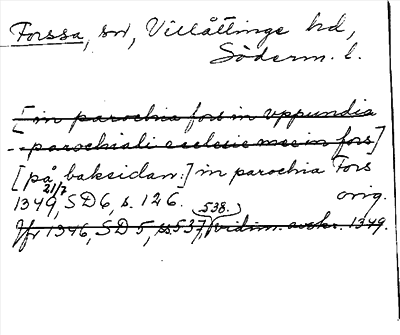 Forssa, sn, Villåttinge hd,
Söderm. l.
[in parochia fors in vppundia
parochiali ecclesie mee in fors]
[på baksidan:] in parochia Fors
21/7
1349, SD 6, s. 126. orig.
538.
Jfr 1346, SD 5, s. 537, vidim. avskr. 1349.